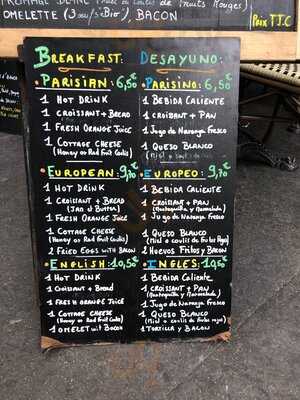 OMELETTE (3 BACON
Prix T.T.C
BREAKFAST:
• PARISIAN: 6,50€
1 HOT DRINK
1 CROISSANT + BREAD
1 FRESH ORANGE JUICE
1 COTTAGE CHEESE
(Honey or Red Fruit Coulis)
• EUROPEAN: 9,70€
1 HOT DRINK
1 CROISSANT + BREAD
(Jam et Butter)
1 FRESH ORANGE JUICE
1 COTTAGE CHEESE
(Honey or Red Fruit Coulis)
2 FRIED EGGS WITH BACON
• ENGLISH: 10,50€
1 HOT DRINK
1 CROISSANT + BREAD
1 FRESH ORANGE JUICE
1 COTTAGE CHEESE
(Honey or Red Fruit Coulis)
1 OMELET WITH BACON
DESAYUNO:
• PARISINO: 6,50€
1 BEBIDA CALIENTE
1 CROISSANT + PAN
1 Jugo de Naranja Fresco
1 QUESO BLANCO
• EUROPEO: 9,70€
1 BEBIDA CALIENTE
1 CROISSANT + PAN
(Mantequilla y Mermelada)
1 Jugo de Naranja Fresco
1 QUESO BLANCO
(Miel o coulis de frutos Rojos)
2 HUEVOS FRITOS Y BACON
• INGLES: 10,50€
1 BEBIDA CALIENTE
1 CROISSANT + PAN
(Mantequilla y Mermelada)
1 Jugo de Naranja Fresco
1 QUESO BLANCO
(Miel o coulis de frutos rojos)
1 TORTILLA Y BACON